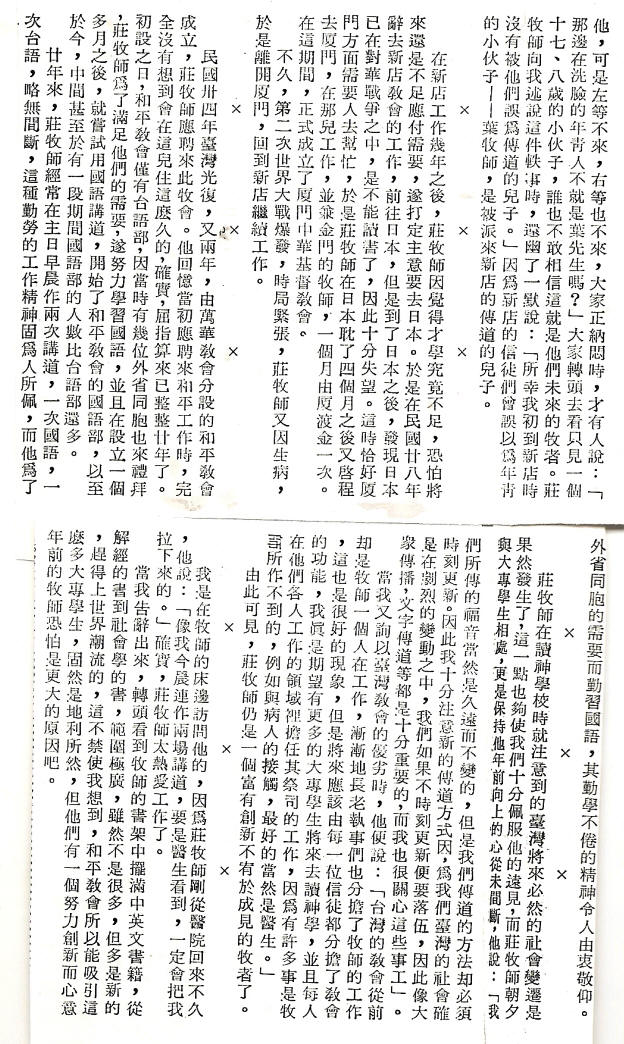 他，可是左等不來，右等也不來，大家正納悶時，才有人說：「
那邊在洗臉的年青人不就是葉先生嗎？」大家轉頭去看只見一個
十七、八歲的小伙子，誰也不敢相信這就是他們未來的牧者。莊
牧師向我述說這件軼事時，還幽了一默說：「所幸我初到新店時
沒有被他們誤爲傳道的兒子。」因爲新店的信徒們曾誤以爲年青
的小伙子——葉牧師，是被派來新店的傳道的兒子。
× × ×
在新店工作幾年之後，莊牧師因覺得才學究竟不足，恐怕將
來還是不足應付需要，遂打定主意要去日本。於是在民國廿八年
辭去新店敎會的工作，前往日本，但是到了日本之後，發現日本
已在對華戰爭之中，是不能讀書了，因此十分失望。這時恰好厦
門方面需要人去幫忙，於是莊牧師在日本耽了四個月之後又啓程
去厦門，在那兒工作，並兼金門的牧師，一個月由厦渡金一次。
在這期間，正式成立了厦門中華基督敎會。
不久，第二次世界大戰爆發，時局緊張，莊牧師又因生病，
於是離開厦門，回到新店繼續工作。
× × ×
民國卅四年臺灣光復，又兩年，由萬華敎會分設的和平敎會
成立，莊牧師應聘來此牧會。他回憶當初應聘來和平工作時，完
全沒有想到會在這兒住這麼久的，確實，屈指算來已整整廿年了。
初設之日，和平敎會僅有台語部，因當時有幾位外省同胞也來禮拜
，莊牧師爲了滿足他們的需要，遂努力學習國語，並且在設立一個
多月之後，就嘗試用國語講道，開始了和平敎會的國語部，以至
於今，中間甚至於有一段期間國語部的人數比台語部還多。
廿年來，莊牧師經常在主日早晨作兩次講道，一次國語，一
次台語，略無間斷，這種勤勞的工作精神固爲人所佩，而他爲了
外省同胞的需要而勤習國語，其勤學不倦的精神令人由衷敬仰。
× × ×
莊牧師在讀神學校時就注意到的臺灣將來必然的社會變遷是
果然發生了，這一點也夠使我們十分佩服他的遠見，而莊牧師朝夕
與大專學生相處，更是保持他年前向上的心從未間斷，他說：「我
們所傳的福音當然是久遠而不變的，但是我們傳道的方法却必須
時刻更新。因此我十分注意新的傳道方式因，爲我們臺灣的社會確
是在劇烈的變動之中，我們如果不時刻更新便要落伍，因此像大
衆傳播，文字傳道等都是十分重要的，而我也很關心這些事工」。
當我又詢以臺灣敎會的優劣時，他便說：「台灣的敎會從前
却是牧師一個人在工作，漸漸地長老執事們也分擔了牧師的工作
，這也是很好的現象，但是將來應該由每一位信徒都分擔了敎會
的功能，我眞是期望有更多的大專學生將來去讀神學，並且每人
在他們各人工作的領域裡擔任其祭司的工作，因爲有許多事是牧
師所作不到的，例如與病人的接觸，最好的當然是醫生。」
由此可見，莊牧師仍是一個富有創新不有於成見的牧者了。
× × ×
我是在牧師的床邊訪問他的，因爲莊牧師剛從醫院回來不久
，他說：「像我今晨連作兩場講道，要是醫生看到，一定會把我
拉下來的。」確實，莊牧師太熱愛工作了。
當我告辭出來，轉頭看到牧師的書架中擺滿中英文書籍，從
解經的書到社會學的書，範圍極廣，雖然不是很多，但多是新的
，趕得上世界潮流的，這不禁使我想到，和平敎會所以能吸引這
麽多大專學生，固然是地利所然，但他們有一個努力創新而心意
年前的牧師恐怕是更大的原因吧。